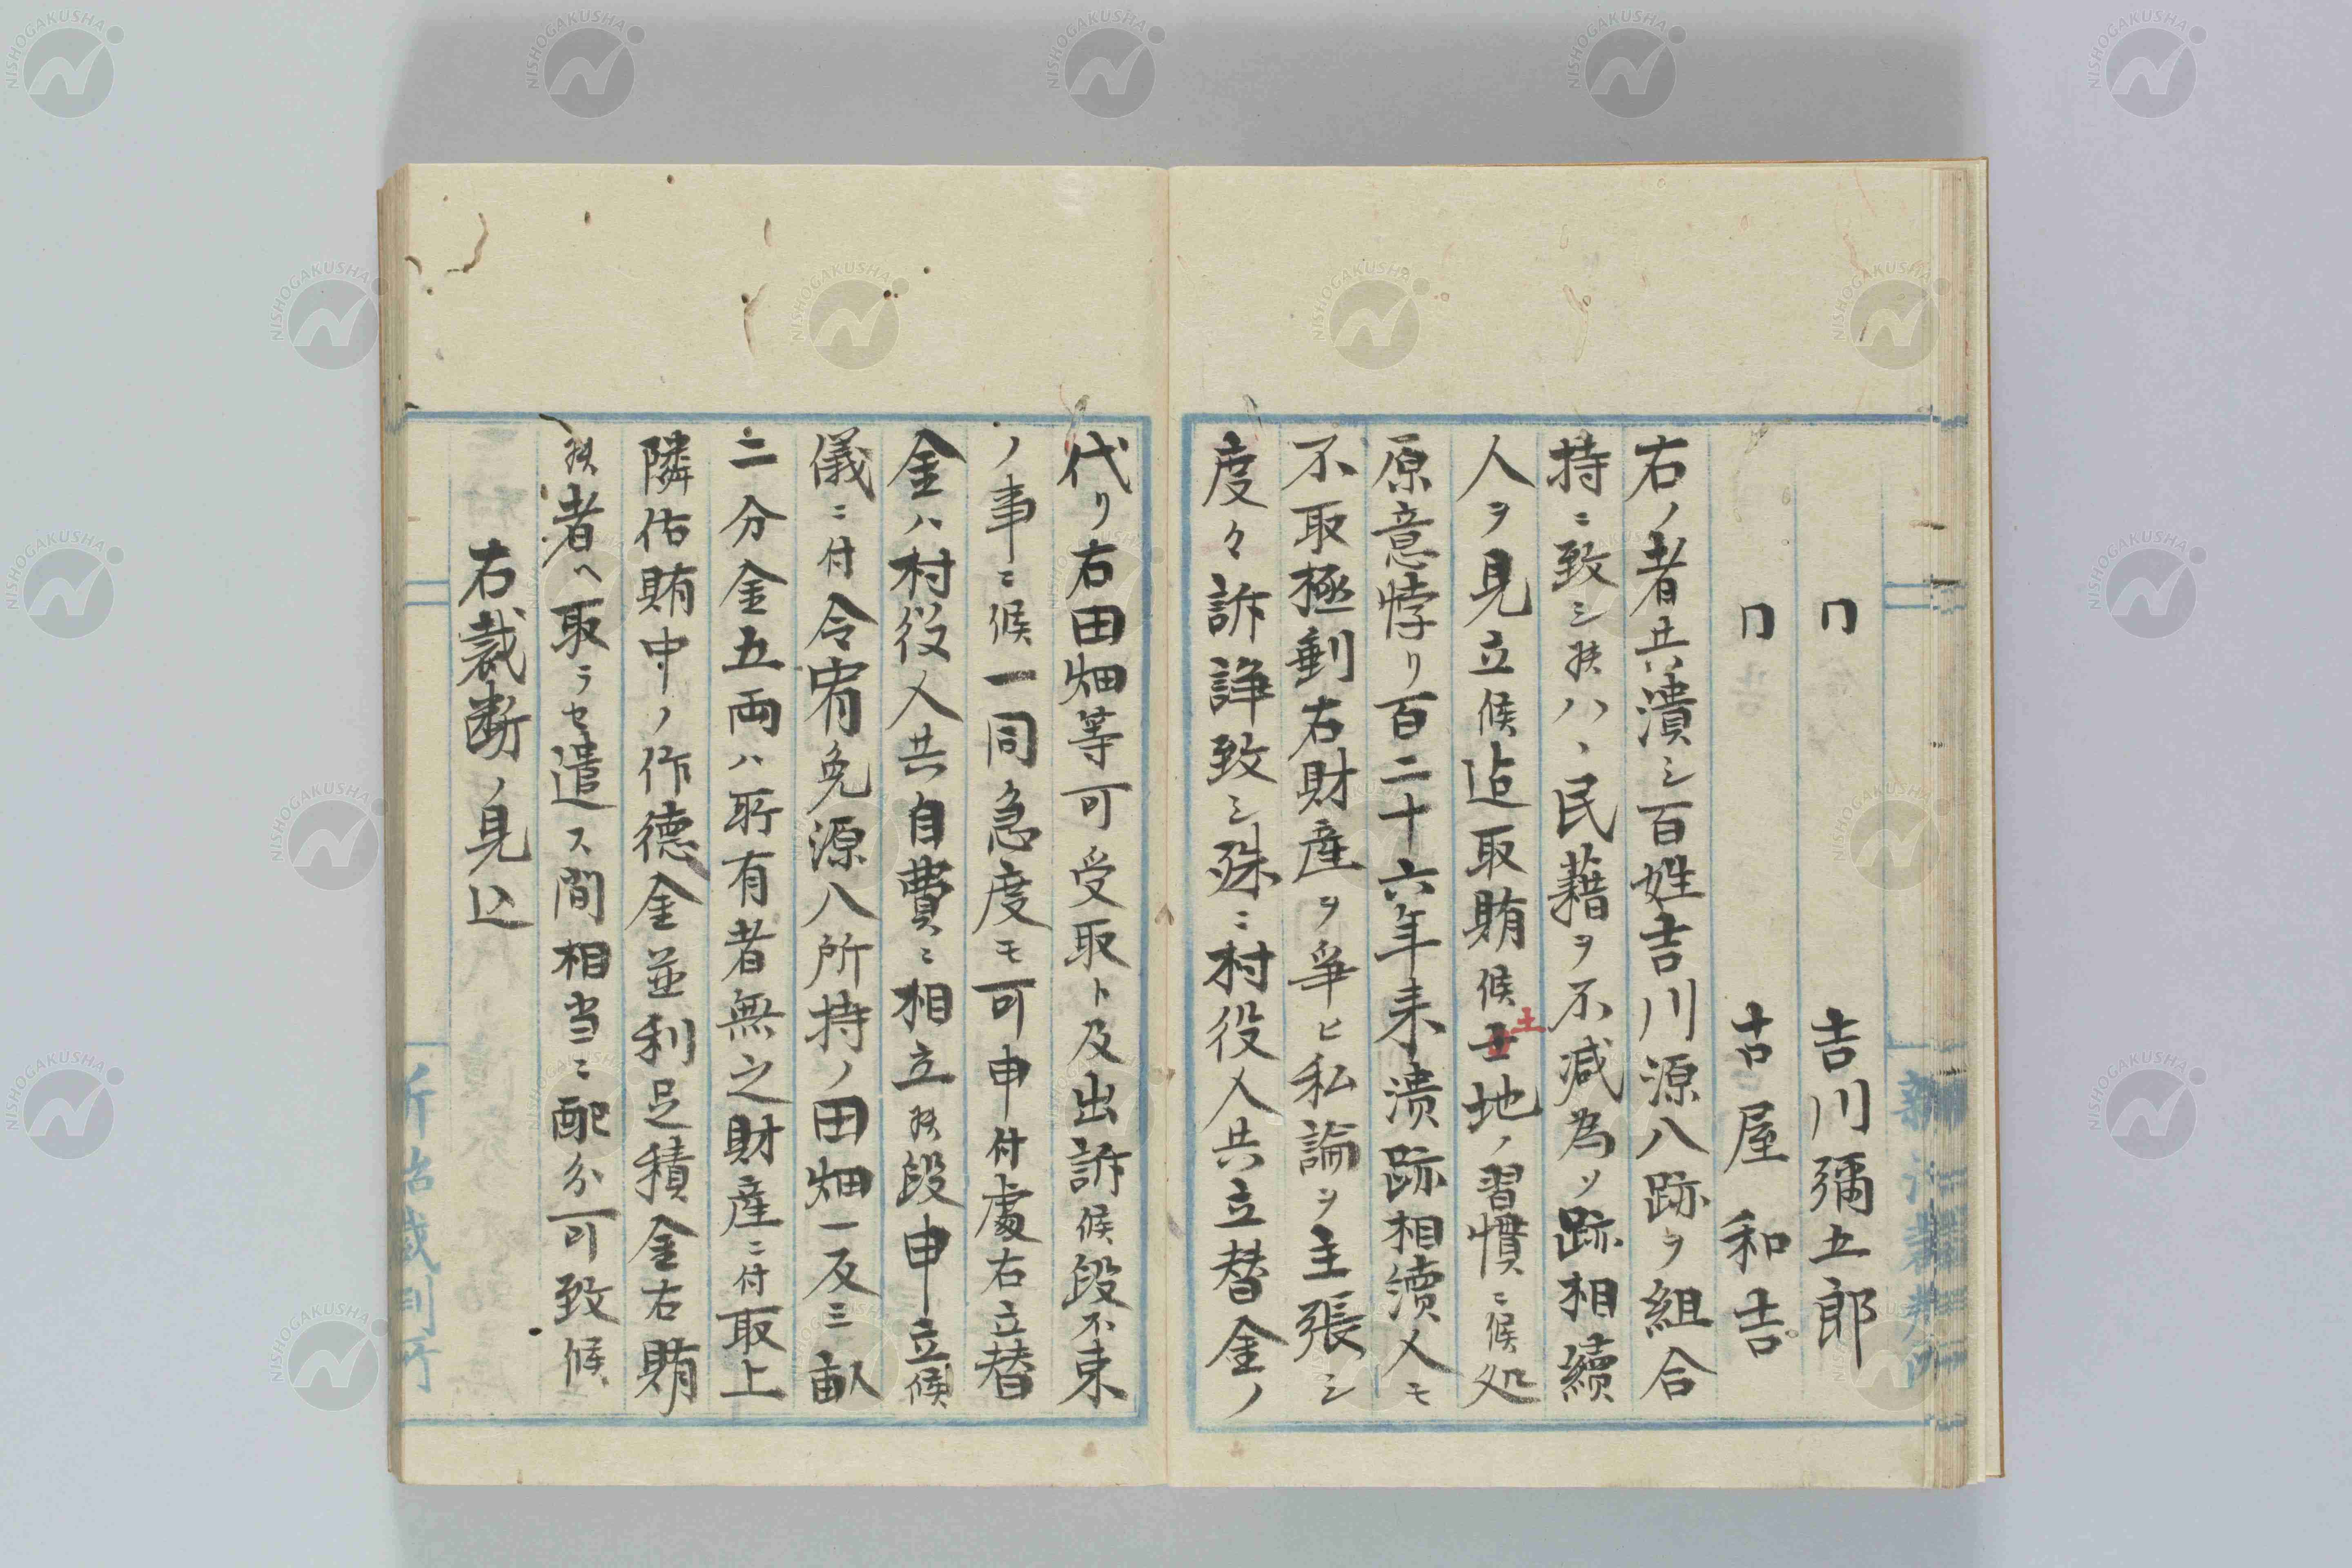 冂 吉川彌五郎
冂 古屋和吉
右ノ者共潰シ百姓吉川源八跡ヲ組合
持ニ致シ候ハヽ民藉ヲ不減為ソ跡相續
人ヲ見立候迠取賄候土地ノ習慣ニ候処
原意悖リ百二十六年来潰跡相續人モ
不取極剰右財産ヲ爭ヒ私論ヲ主張シ
度々訴諍致シ殊ニ村役人共立替金ノ
代リ右田畑等可受取ト及出訴候段不束
ノ事ニ候一同急度モ可申付處右立替
金ハ村役人共自費ニ相立候段申立候
儀ニ付令宥免源八所持ノ田畑一反三畝
二分金五両ハ所有者無之財産ニ付取上
隣佑賄中ノ作德金並利足積金右賄
候者ヘ取ラセ遣ス間相当ニ配分可致候
右裁断ノ見込
NISHOGAKUSHA